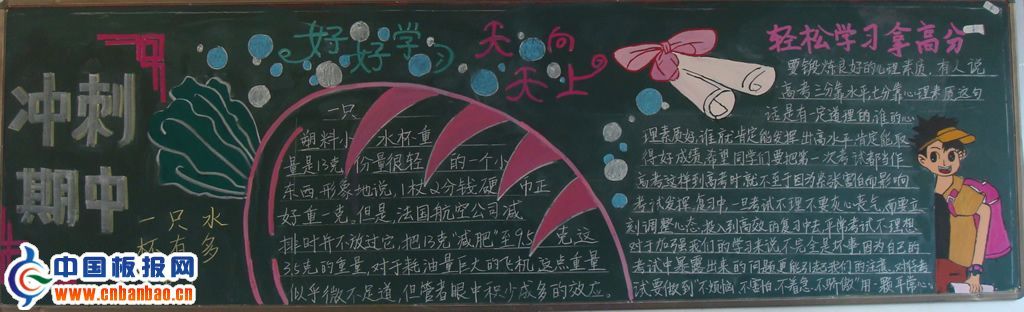 冲刺
期中
好好学习
天天向上
轻松学习拿高分
一只水
杯有多
一只
塑料小水杯重
量是13克,份量很轻的一个小
东西,形象地说,1枚2分钱硬币正
好重一克.但是,法国航空公司减
排时并不放过它,把13克"减肥"至9.5克,这
3.5克的重量,对于耗油量巨大的飞机,这点重量
似乎微不足道,但管者眼中积少成多的效应.
要锻炼良好的心理素质,有人说
高考三分靠水平七分靠心理素质这句
话是有一定道理的,谁的心
理素质好,谁就肯定能发挥出高水平,肯定能取
得好成绩,希望同学们要把第一次考试都当作
高考,这样到高考时就不至于因为紧张害怕而影响
考试发挥.复习中,一旦考试不理不要灰心丧气,而要立
刻调整心态,投入到高效的复习中去,平常考试不理想
对于加强我们的学习来说不完全是坏事,因为自己的
考试中暴露出来的问题更能引起我们的注意,对待考
试要做到"不烦恼,不害怕,不着急,不骄傲"用一颗平常心.
中国板报网
www.cnbanbao.cn